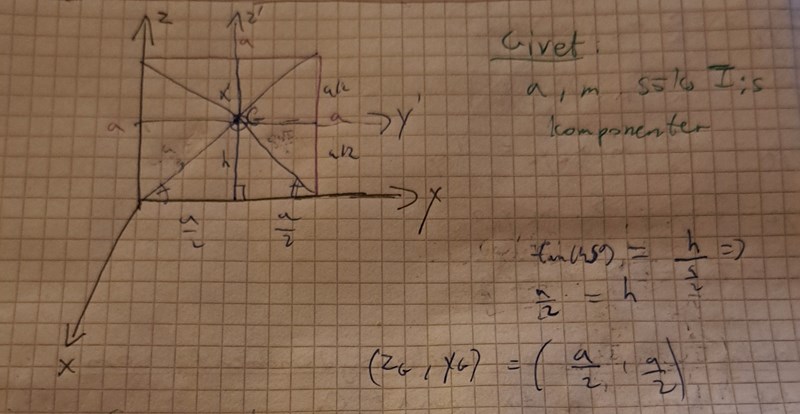 z
z'
a
a/2
a
x'
G
a
y'
a/2
h
y
a/2
a/2
x
Givet:
a, m, sök I:s
komponenter
tan(45°) = h / (a/2) =>
a/2 = h
(z_G, y_G) = (a/2, a/2)